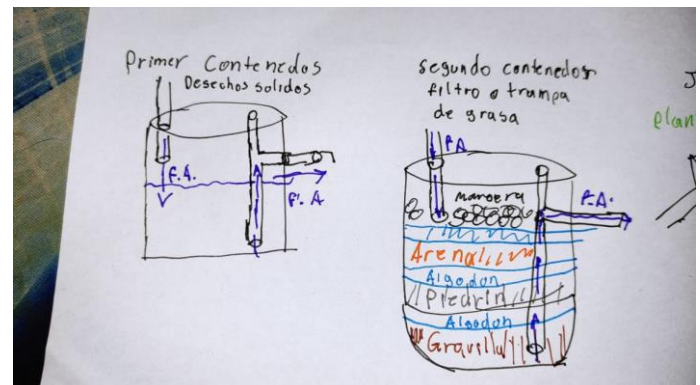 Primer Contenedos
Desechos solidos
F.A.
F. A
segundo contenedor
filtro o trampa
de grasa
F A
F.A.
Arena
Algodon
Piedrin
Algodon
Gravilla
J
plan